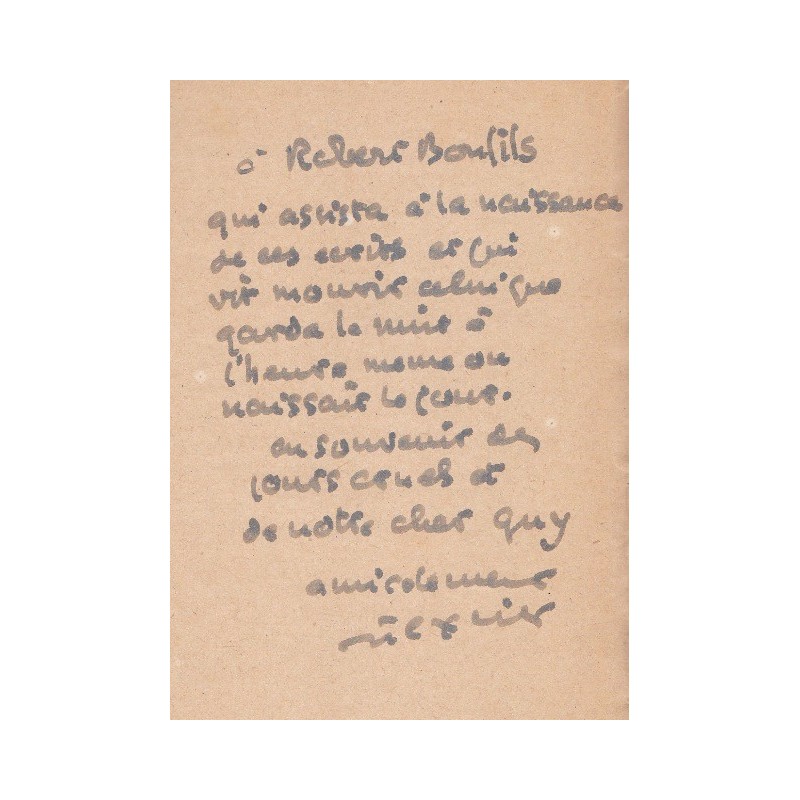 à Robert Bonfils
qui assista à la naissance
de ces ecrits et qui
vit mourir celui que
garda la nuit à
l'heure meme ou
naissait le jour.
en souvenir des
jours cruels et
de notre cher Guy
amicalement